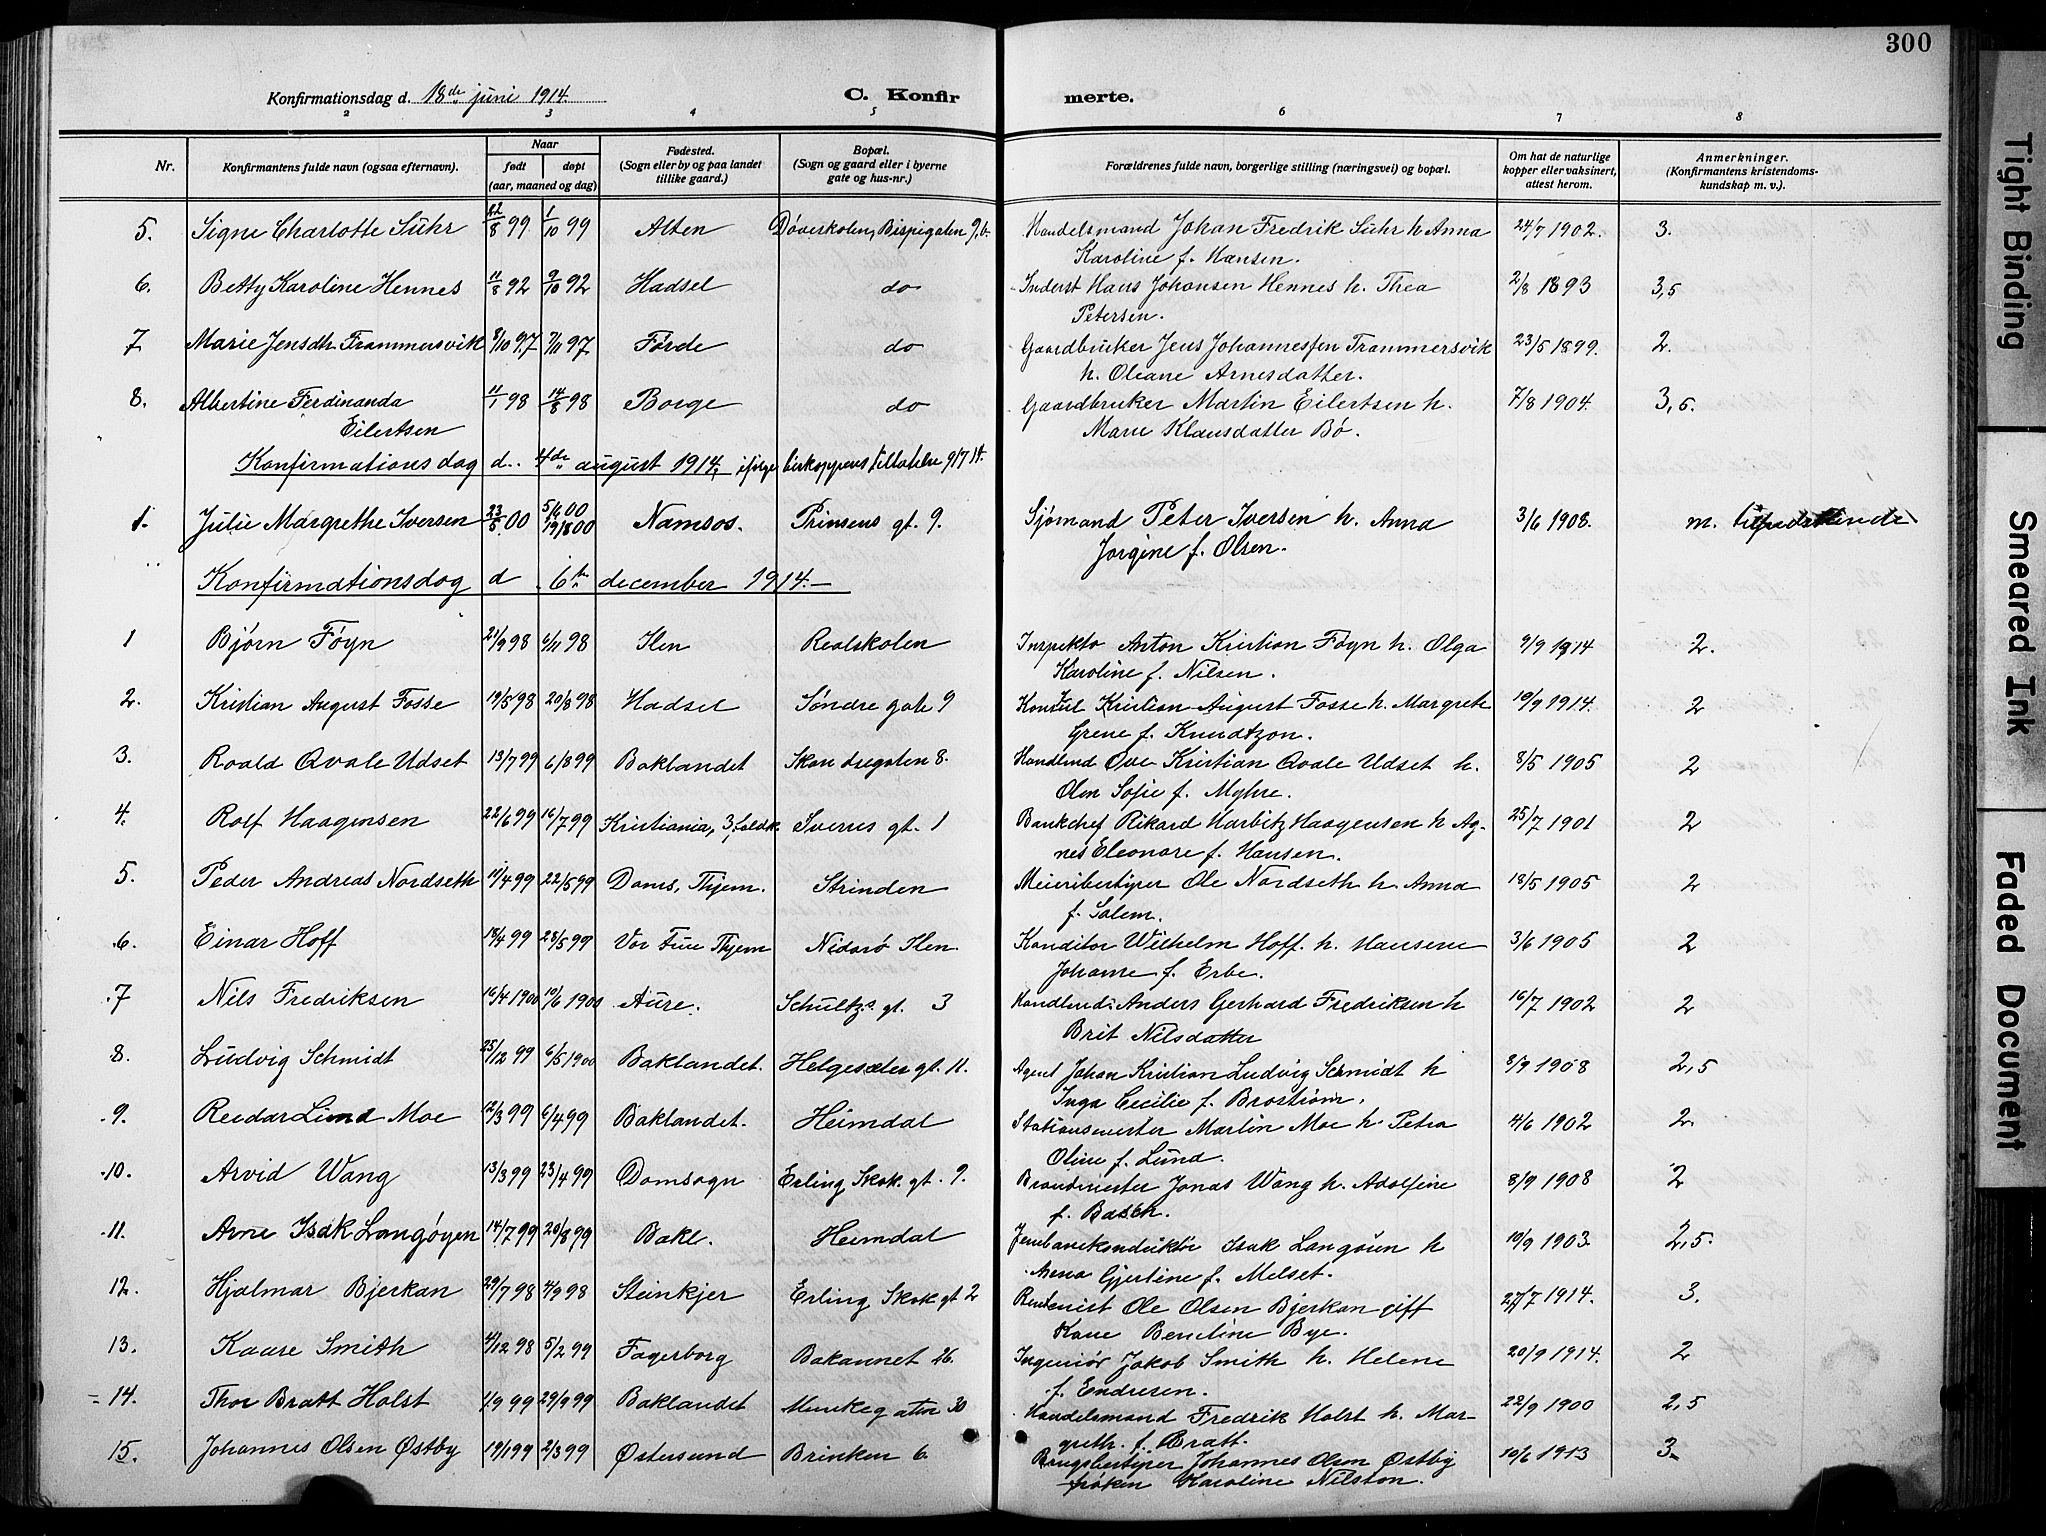 300
Konfirmationsdag d. 18de juni 1914.
C. Konfir merte.
2 3 4 5 6 7 8
Nr. Konfirmantens fulde navn (ogsaa efternavn). Naar født døpt (aar, maaned og dag) Fødested. (Sogn eller by og paa landet tillike gaard.) Bopæl. (Sogn og gaard eller i byerne gate og hus-nr.) Forældrenes fulde navn, borgerlige stilling (næringsvei) og bopæl. Om hat de naturlige kopper eller vaksinert, attest herom. Anmerkninger. (Konfirmantens kristendomskundskap m. v.).
5. Signe Charlotte Suhr 22/8 99 1/10 99 Alten Døveskolen, Bispegaten 9,b. Handelsmand Johan Fredrik Suhr h. Anna 24/7 1902. 3.
Karoline f. Hansen.
6. Betty Karoline Hennes 11/8 92 9/10 92 Hadsel do Inderst Hans Johansen Hennes h. Thea 2/8 1893 3,5
Petersen.
7 Marie Jensdtr Frammersvik 8/10 97 7/11 97 Førde do Gaardbruker Jens Johannessen Frammersvik 23/5 1899. 2.
h. Oleane Arnesdatter.
8. Albertine Ferdinanda 11/1 98 14/8 98 Borge do Gaardbruker Martin Eilertsen h. 7/8 1904. 3,5.
Eilertsen Marie Klausdatter Bø.
Konfirmationsdag d. 4de august 1914, ifølge biskoppens tillatelse 9/7 14.
1. Julie Margrethe Iversen 23/5 00 5/6 00 19/8 00 Namsos. Prinsens gt. 9. Sjømand Peter Iversen h. Anna 3/6 1908. m.
Jorgine f. Olsen.
Konfirmationsdag d. 6te december 1914.
1 Bjørn Føyn 21/9 98 6/11 98 Ilen Realskolen Inspektø Anton Kristian Føyn h. Olga 9/9 1914 2.
Karoline f. Nilsen.
2. Kristian August Fosse 19/5 98 20/8 98 Hadsel Søndre gate 9 Konsul Kristian August Fosse h. Margrete 10/9 1914. 2
Grene f. Knudtzon.
3. Roald Qvale Udset 13/7 99 6/8 99 Baklandet Skansegaten 8. Handlend Ove Kristian Qvale Udset h. 8/5 1905 2
Olen Sofie f. Myhre.
4. Rolf Haagensen 22/6 99 16/7 99 Kristiania, Sverres gt. 1 Bankchef Rikard Harbitz Haagensen h Ag- 25/7 1901 2
nes Eleonore f. Hansen.
5. Peder Andreas Nordseth 11/4 99 22/5 99 Doms, Thjem. Strinden Meieribestyrer Ole Nordseth h. Anna 18/5 1905 2
f. Solem.
6. Einar Hoff 18/4 99 28/5 99 Vor Frue Thjem Nidarø Ilen Konditor Wilhelm Hoff. h. Hansine 3/6 1905 2
Johanne f. Erbe.
7 Nils Fredriksen 16/4 1900 10/6 1900 Aure. Schultz's gt. 3 Handlende Anders Gerhard Fredriksen h 16/7 1902 2
Brit Nilsdatter
8. Ludvig Schmidt 25/12 99 6/5 1900 Baklandet. Helgesæter gt. 11. Agent Johan Kristian Ludvig Schmidt h 8/9 1908 2,5
Inga Cecilie f. Brostrøm.
9. Reidar Lund Moe 12/3 99 6/4 99 Baklandet. Heimdal Stationsmester Martin Moe h. Petra 4/6 1902 2.
Oline f. Lund.
10. Arvid Wang 13/3 99 23/4 99 Domsogn Erling Skak. gt. 9. Brandmester Jonas Wang h. Adolfine 8/9 1908 2
f. Basch.
11. Arne Isak Langøyen 14/7 99 20/8 99 Bakl. Heimdal Jernbanekonduktør Isak Langøien h 10/9 1903. 2,5.
Anna Gjertine f. Melset.
12. Hjalmar Bjerkan 29/7 98 4/9 98 Steinkjer Erling Skak gt 2 Rentenist Ole Olsen Bjerkan gift 27/7 1914. 3.
Kone Bendtine Bye.
13. Kaare Smith 4/12 98 5/2 99 Fagerborg Bakaunet 26. Ingeniør Jakob Smith h. Helene 20/9 1914. 2
f. Endresen.
14. Thor Bratt Holst 1/9 99 29/9 99 Baklandet Munkegaten 30 Handelsmand Fredrik Holst h. Mar- 22/9 1900 2,5
greth. f. Bratt.
15. Johannes Olsen Østby 19/1 99 2/3 99 Østersund Brinken 6. Brugsbestyrer Johannes Olsen Østby 10/6 1913 3
frøken Karoline Nilsson.
Tight Binding
Smeared Ink
Faded Document